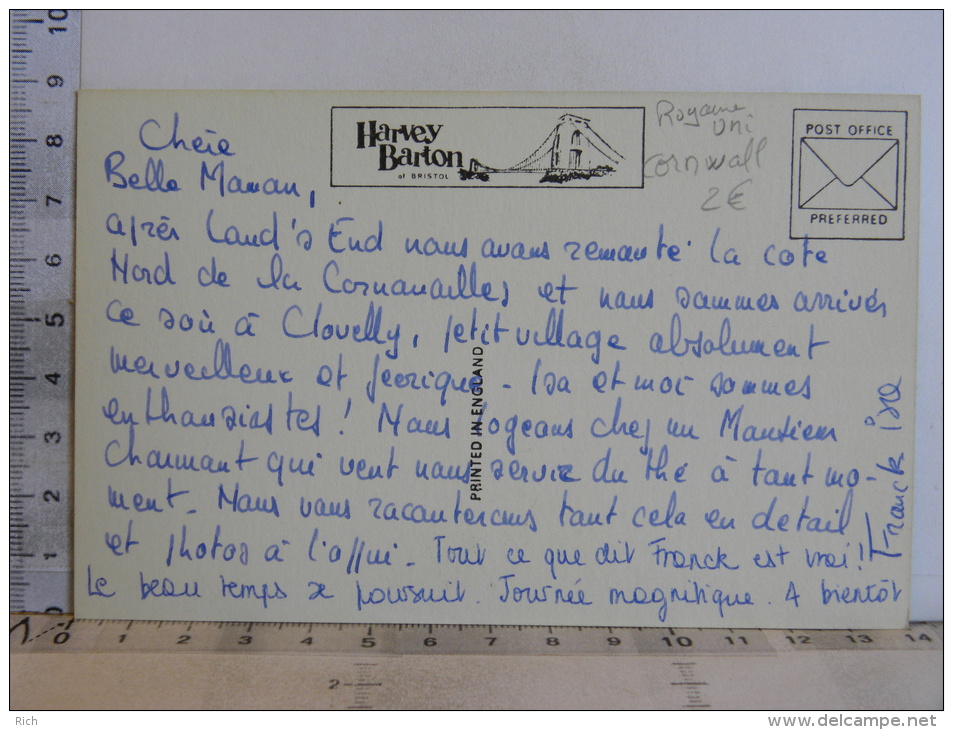 Harvey
Barton
of BRISTOL
Royaume
Uni
Cornwall
2€
POST OFFICE
PREFERRED
Chère
Belle Maman,
après Land's End nous avons remonté la cote
Nord de la Cornouailles et nous sommes arrivés
ce soir à Clovelly, petit village absolument
merveilleux et féerique - Isa et moi sommes
enthousiastes! Nous logeons chez un Monsieur
Charmant qui veut nous servir du thé à tout mo-
ment. Nous vous raconterons tout cela en detail
et photos à l'appui. Tout ce que dit Franck est vrai!
Le beau temps se poursuit. Journée magnifique. A bientôt
Franck isa
PRINTED IN ENGLAND
10
9
8
7
6
5
4
3
2
1
0 1 2 3 4 5 6 7 8 9 10 11 12 13 14
2
Rich
www.delcampe.net